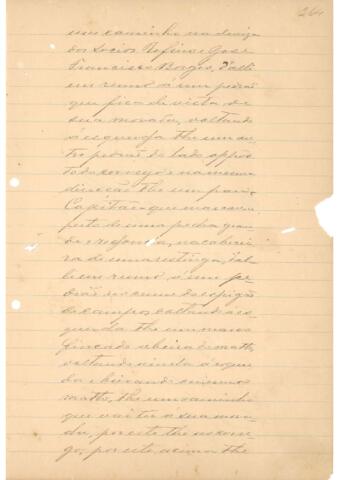 264
um caminho na divisa
dos Socios Rofino e José
Francisco Borges, d'alli
em rumo á um pedrão
que fica de vista de
sua morada, voltando
á esquerda the um ou
tro pedrão do lado oppos
to do corrego e na mesma
direcção the um pau
Capitão que mais
perto de uma pedra gran
de e redonda, na cabecei
ra de uma restinga, d'al
li em rumo a um pe
drão no cume do espigão
do campo, voltando a es
querda the um marco
fincado a beira do matto,
voltando ainda á esquer
da e beirando o mesmo
matto, the um caminho
que vai ter á sua mora
da, por este the o corre
go, por este acima the